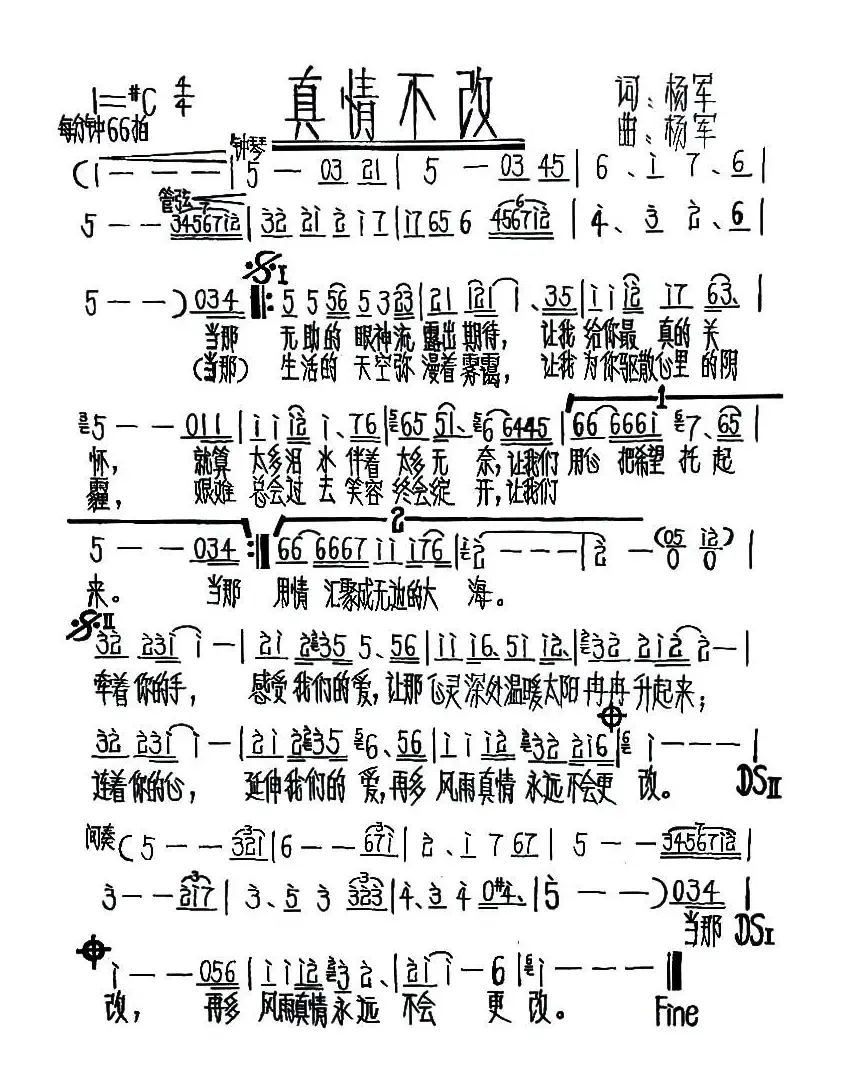 真情不改
1=#C 4/4
词：杨军
每分钟66拍
曲：杨军
钟琴
(i - - - | 5 - 03 21 | 5 - 03 45 | 6、i 7、6 |
管弦
5 - - 34567i2 | 32 21 2 i 7 | i7 65 6 4567i2 | 4、3 2、6 |
𝄋I
5 - - ) 034 ‖: 5 5 56 5 3 23 | 21 121 1、35 | i i i2 i7 63、 |
当那 无助的 眼神流 露出期待， 让我 给你最 真的 关
(当那) 生活的 天空弥 漫着雾霭， 让我 为你驱散心里 的阴
1
5 - - 011 | i i i2 i、76 | 65 51、6 6445 | 66 666i 7、65 |
怀， 就算 太多泪 水 伴着 太多无 奈，让我们 用心 把希望 托 起
霾， 艰难 总会过 去 笑容 终会绽 开，让我们
2
5 - - 034 :‖ 66 6667 i i i76 | 2 - - - | 2 - (05 i2) |
0 0
来。 当那 用情 汇聚成无边的大 海。
𝄋II
32 23i i - | 2i 2235 5、56 | i i i6、5i i2、| 32 2i2 2 - |
牵着 你的手， 感受 我们的爱，让那 心灵深处温暖太阳 冉冉 升起来；
32 23i i - | 2i 2235 6、56 | i i i2 32 2i6 | i - - - |
连着 你的心， 延伸我们的 爱，再多 风雨真情 永远不会更 改。 DSII
间奏 (5 - - 32i | 6 - - 67i | 2、i 7 67 | 5 - - 34567i2 |
3 - - 2i7 | 3、5 3 323 | 4、3 4 0#4、| 5 - - ) 034 |
当那 DSI
i - - 056 | i i i2 3 2、| 2i i - 6 | i - - - ‖
改， 再多 风雨真情永 远 不会 更 改。 Fine